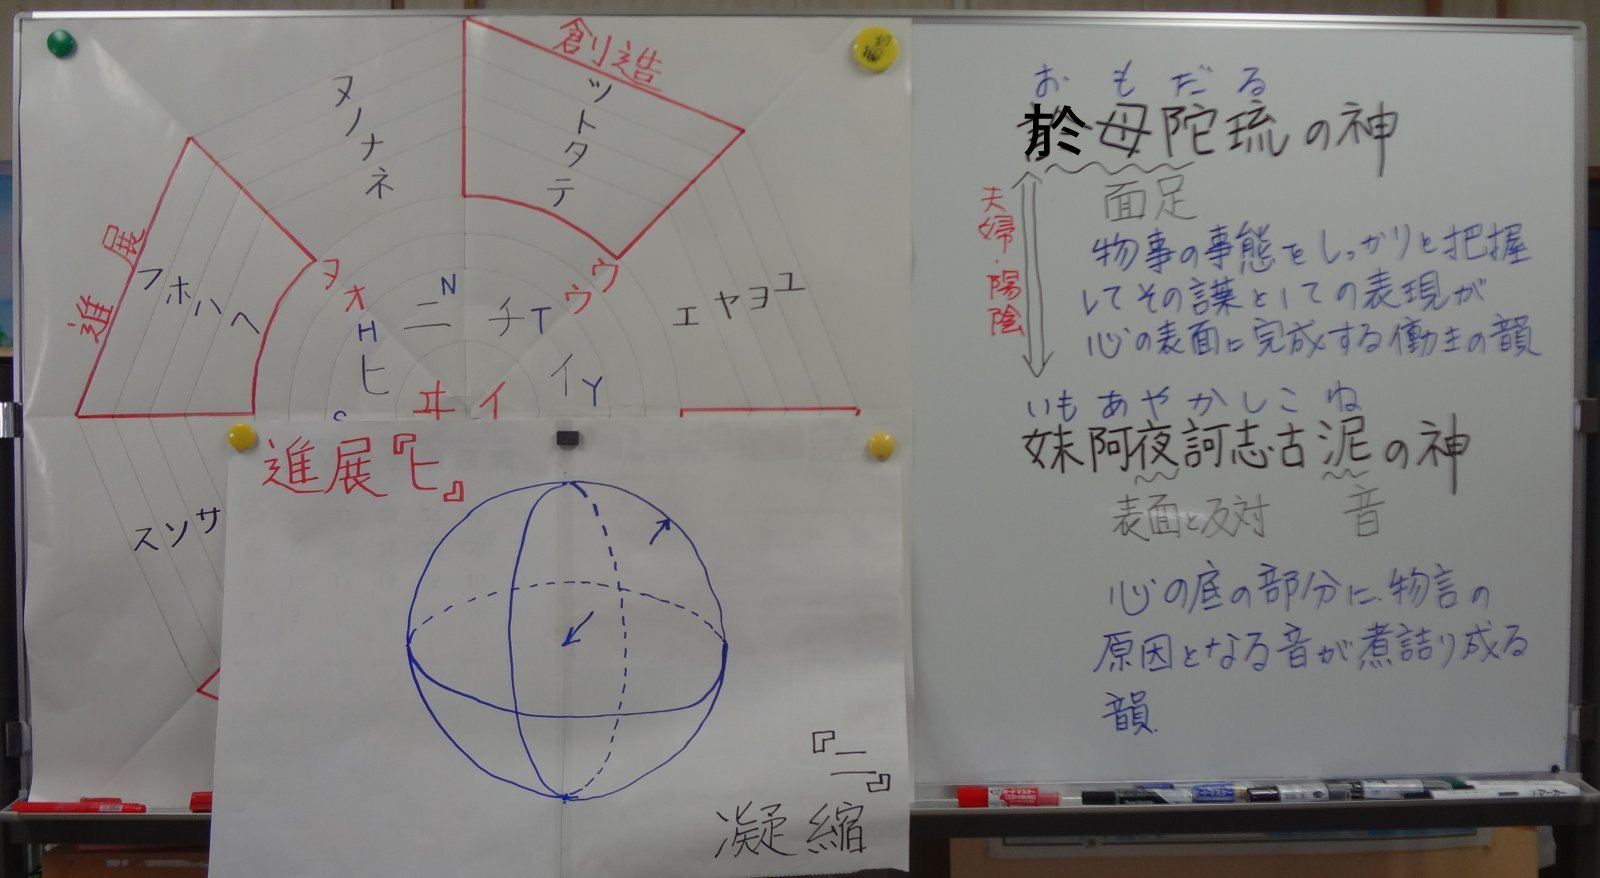 創造
ツトタテ
ヌノナネ
進展
フホハヘ
ヲ
オ
ウ
ウ
エヤヨユ
ニN
チT
H
ヒ
イY
ヰ
イ
スソサ
進展『ヒ』
『ニ』
凝縮
おもだる
於母陀琉の神
面足
夫婦・陽陰
物事の事態をしっかりと把握
してその言葉としての表現が
心の表面に完成する働きの韻
いもあやかしこね
妹阿夜訶志古泥の神
表面と反対
音
心の底の部分に、物言の
原因となる音が煮詰り成る
韻